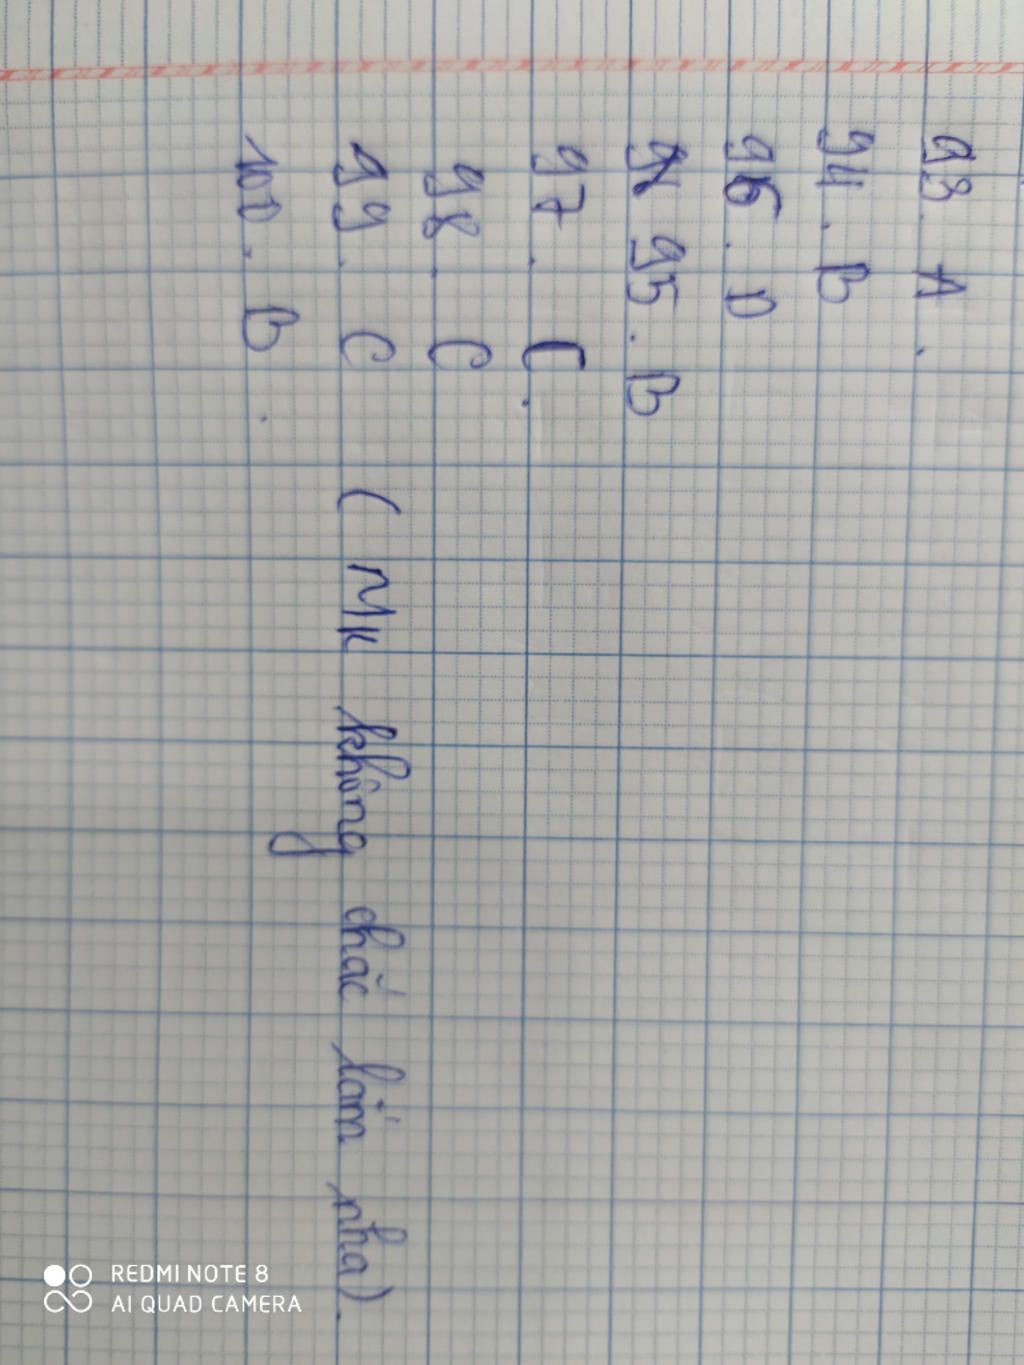 93. A.
94. B
96. D
95. B
97. C.
98. C
99. C ( Mk không chắc lắm nha).
100. B.
REDMI NOTE 8
AI QUAD CAMERA